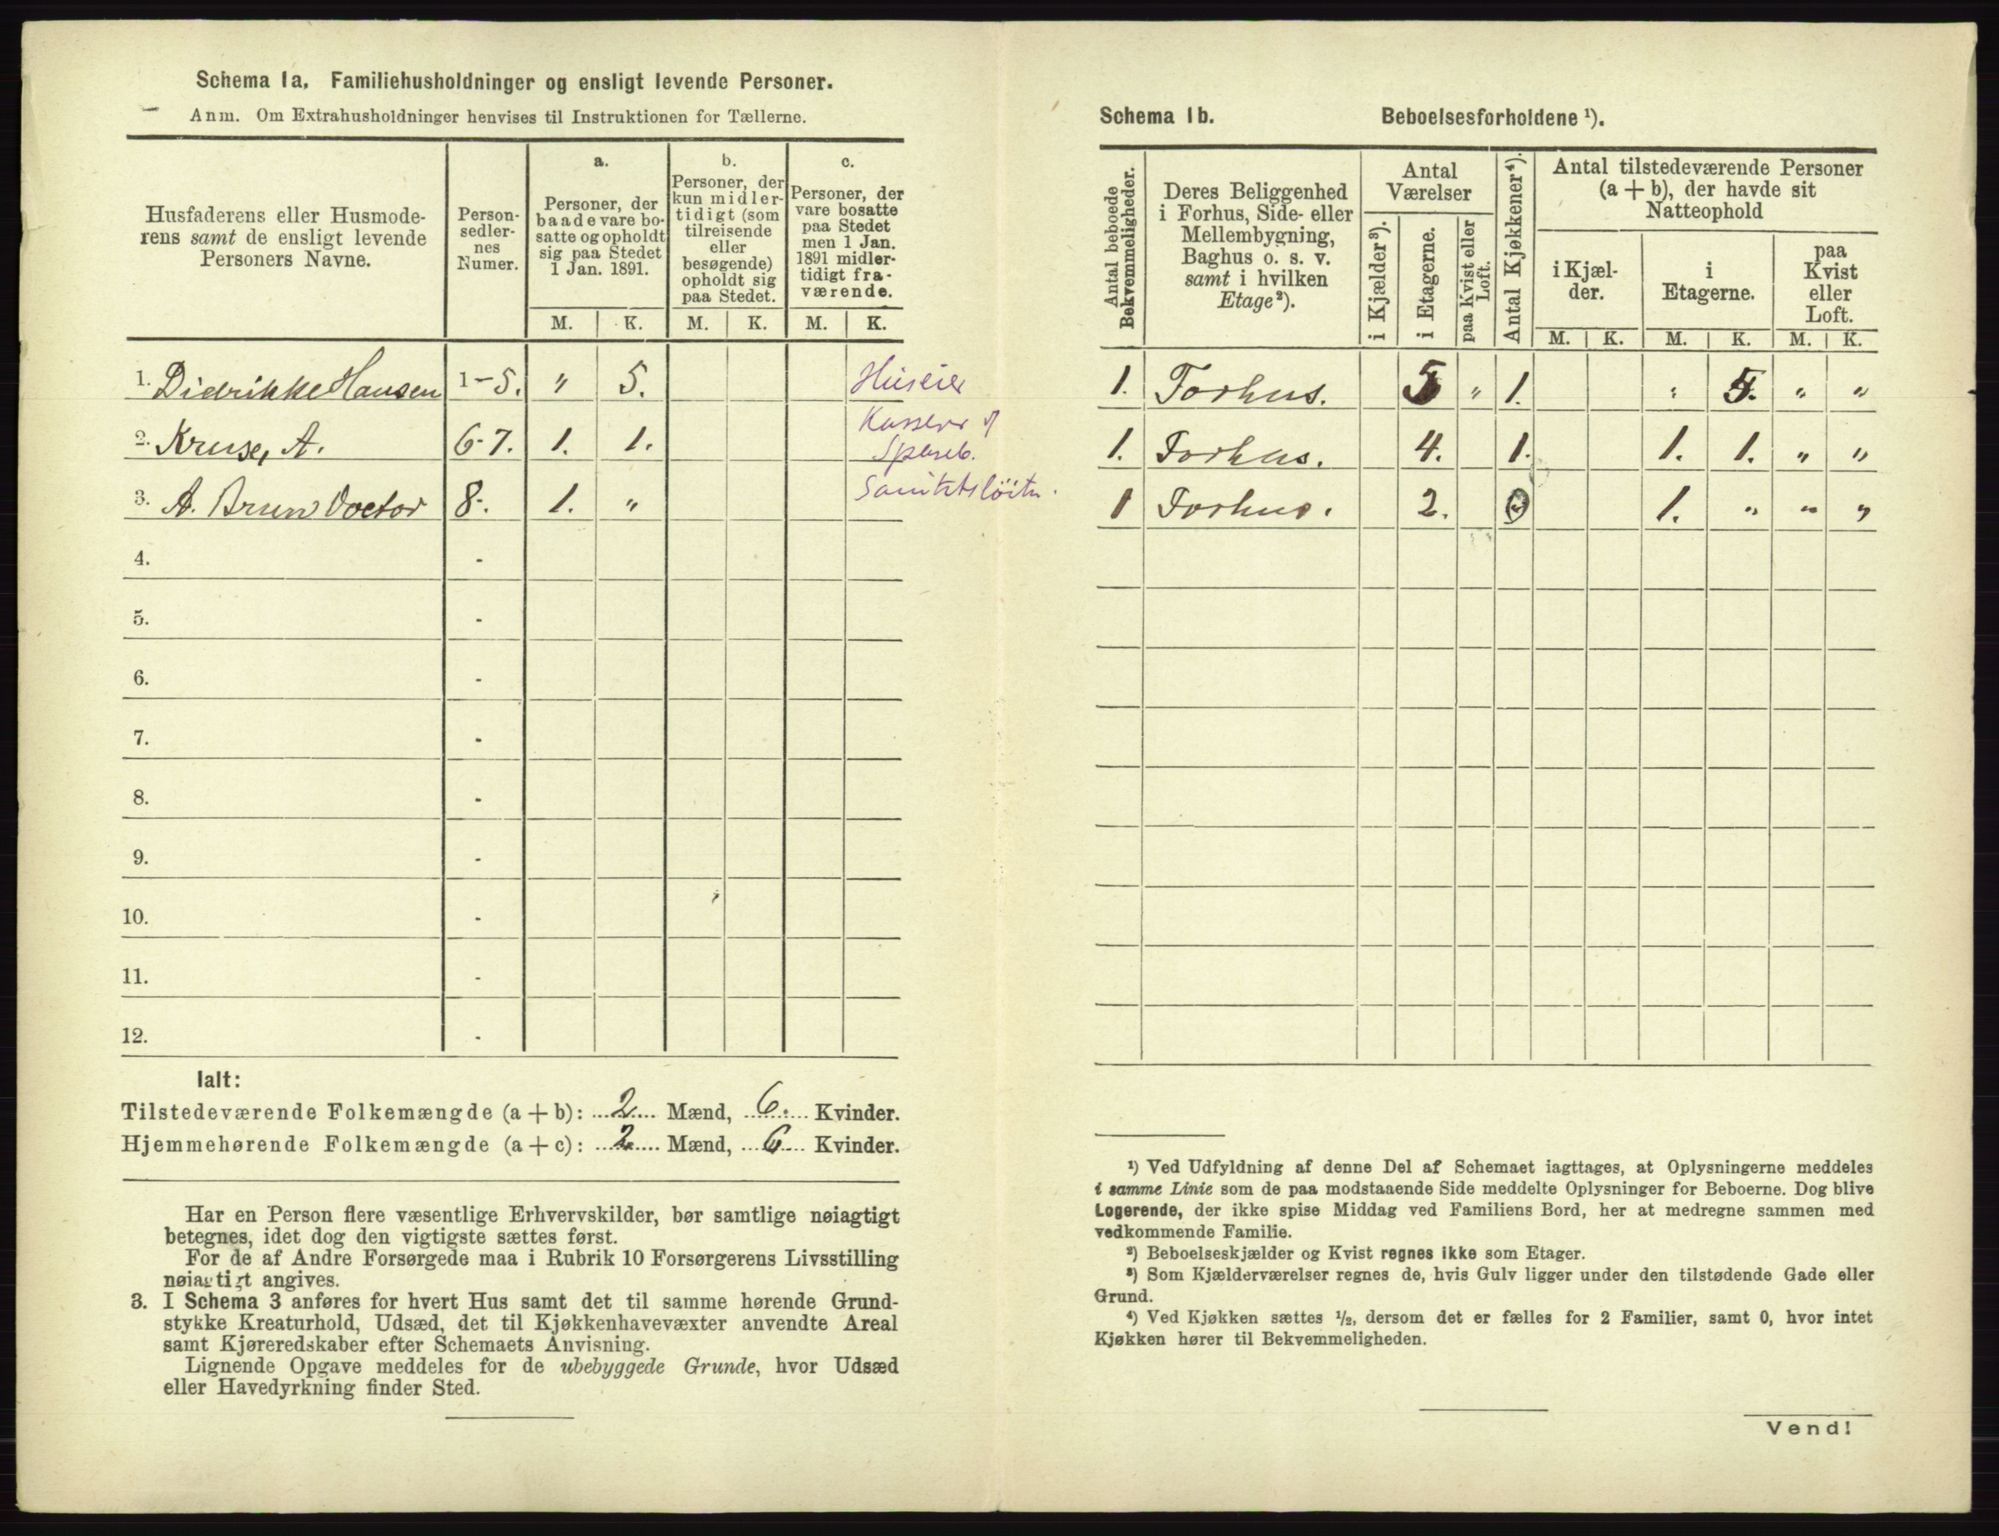 Schema 1a. Familiehusholdninger og ensligt levende Personer.
Anm. Om Extrahusholdninger henvises til Instruktionen for Tællerne.
Husfaderens eller Husmode-
rens samt de ensligt levende
Personers Navne.
Person-
sedler-
nes
Numer.
a.
Personer, der
baade vare bo-
satte og opholdt
sig paa Stedet
1 Jan. 1891.
b.
Personer, der
kun midler-
tidigt (som
tilreisende
eller
besøgende)
opholdt sig
paa Stedet.
c.
Personer, der
vare bosatte
paa Stedet
men 1 Jan.
1891 midler-
tidigt fra-
værende.
M. K. M. K. M. K.
1. Didrikke Hansen 1-5. " 5. Huseier
2. Kruse, A. 6-7. 1. 1. Kasserer
Spareb.
3. A. Brun Doctor 8-. 1. " Sanitetsløitn.
4. -
5. -
6. -
7. -
8. -
9. -
10. -
11. -
12. -
Ialt:
Tilstedeværende Folkemængde (a + b): 2 Mænd, 6. Kvinder.
Hjemmehørende Folkemængde (a + c): 2 Mænd, 6 Kvinder.
Har en Person flere væsentlige Erhvervskilder, bør samtlige nøiagtigt
betegnes, idet dog den vigtigste sættes først.
For de af Andre Forsørgede maa i Rubrik 10 Forsørgerens Livsstilling
nøiagtigt angives.
3. I Schema 3 anføres for hvert Hus samt det til samme hørende Grund-
stykke Kreaturhold, Udsæd, det til Kjøkkenhavevæxter anvendte Areal
samt Kjøreredskaber efter Schemaets Anvisning.
Lignende Opgave meddeles for de ubebyggede Grunde, hvor Udsæd
eller Havedyrkning finder Sted.
Schema 1b. Beboelsesforholdene ¹).
Antal beboede
Bekvemmeligheder.
Deres Beliggenhed
i Forhus, Side- eller
Mellembygning,
Baghus o. s. v.
samt i hvilken
Etage²).
Antal
Værelser
i Kjælder ³).
i Etagerne.
paa Kvist eller
Loft.
Antal Kjøkkener ⁴).
Antal tilstedeværende Personer
(a + b), der havde sit
Natteophold
i Kjæl-
der.
i
Etagerne.
paa
Kvist
eller
Loft.
M. K. M. K. M. K.
1. Forhus. 5 " 1. " 5. " "
1. Forhus. 4. 1. 1. 1. " "
1 Forhus. 2. 0 1. " " "
¹) Ved Udfyldning af denne Del af Schemaet iagttages, at Oplysningerne meddeles
i samme Linie som de paa modstaaende Side meddelte Oplysninger for Beboerne. Dog blive
Logerende, der ikke spise Middag ved Familiens Bord, her at medregne sammen med
vedkommende Familie.
²) Beboelseskjælder og Kvist regnes ikke som Etager.
³) Som Kjælderværelser regnes de, hvis Gulv ligger under den tilstødende Gade eller
Grund.
⁴) Ved Kjøkken sættes ½, dersom det er fælles for 2 Familier, samt 0, hvor intet
Kjøkken hører til Bekvemmeligheden.
Vend!